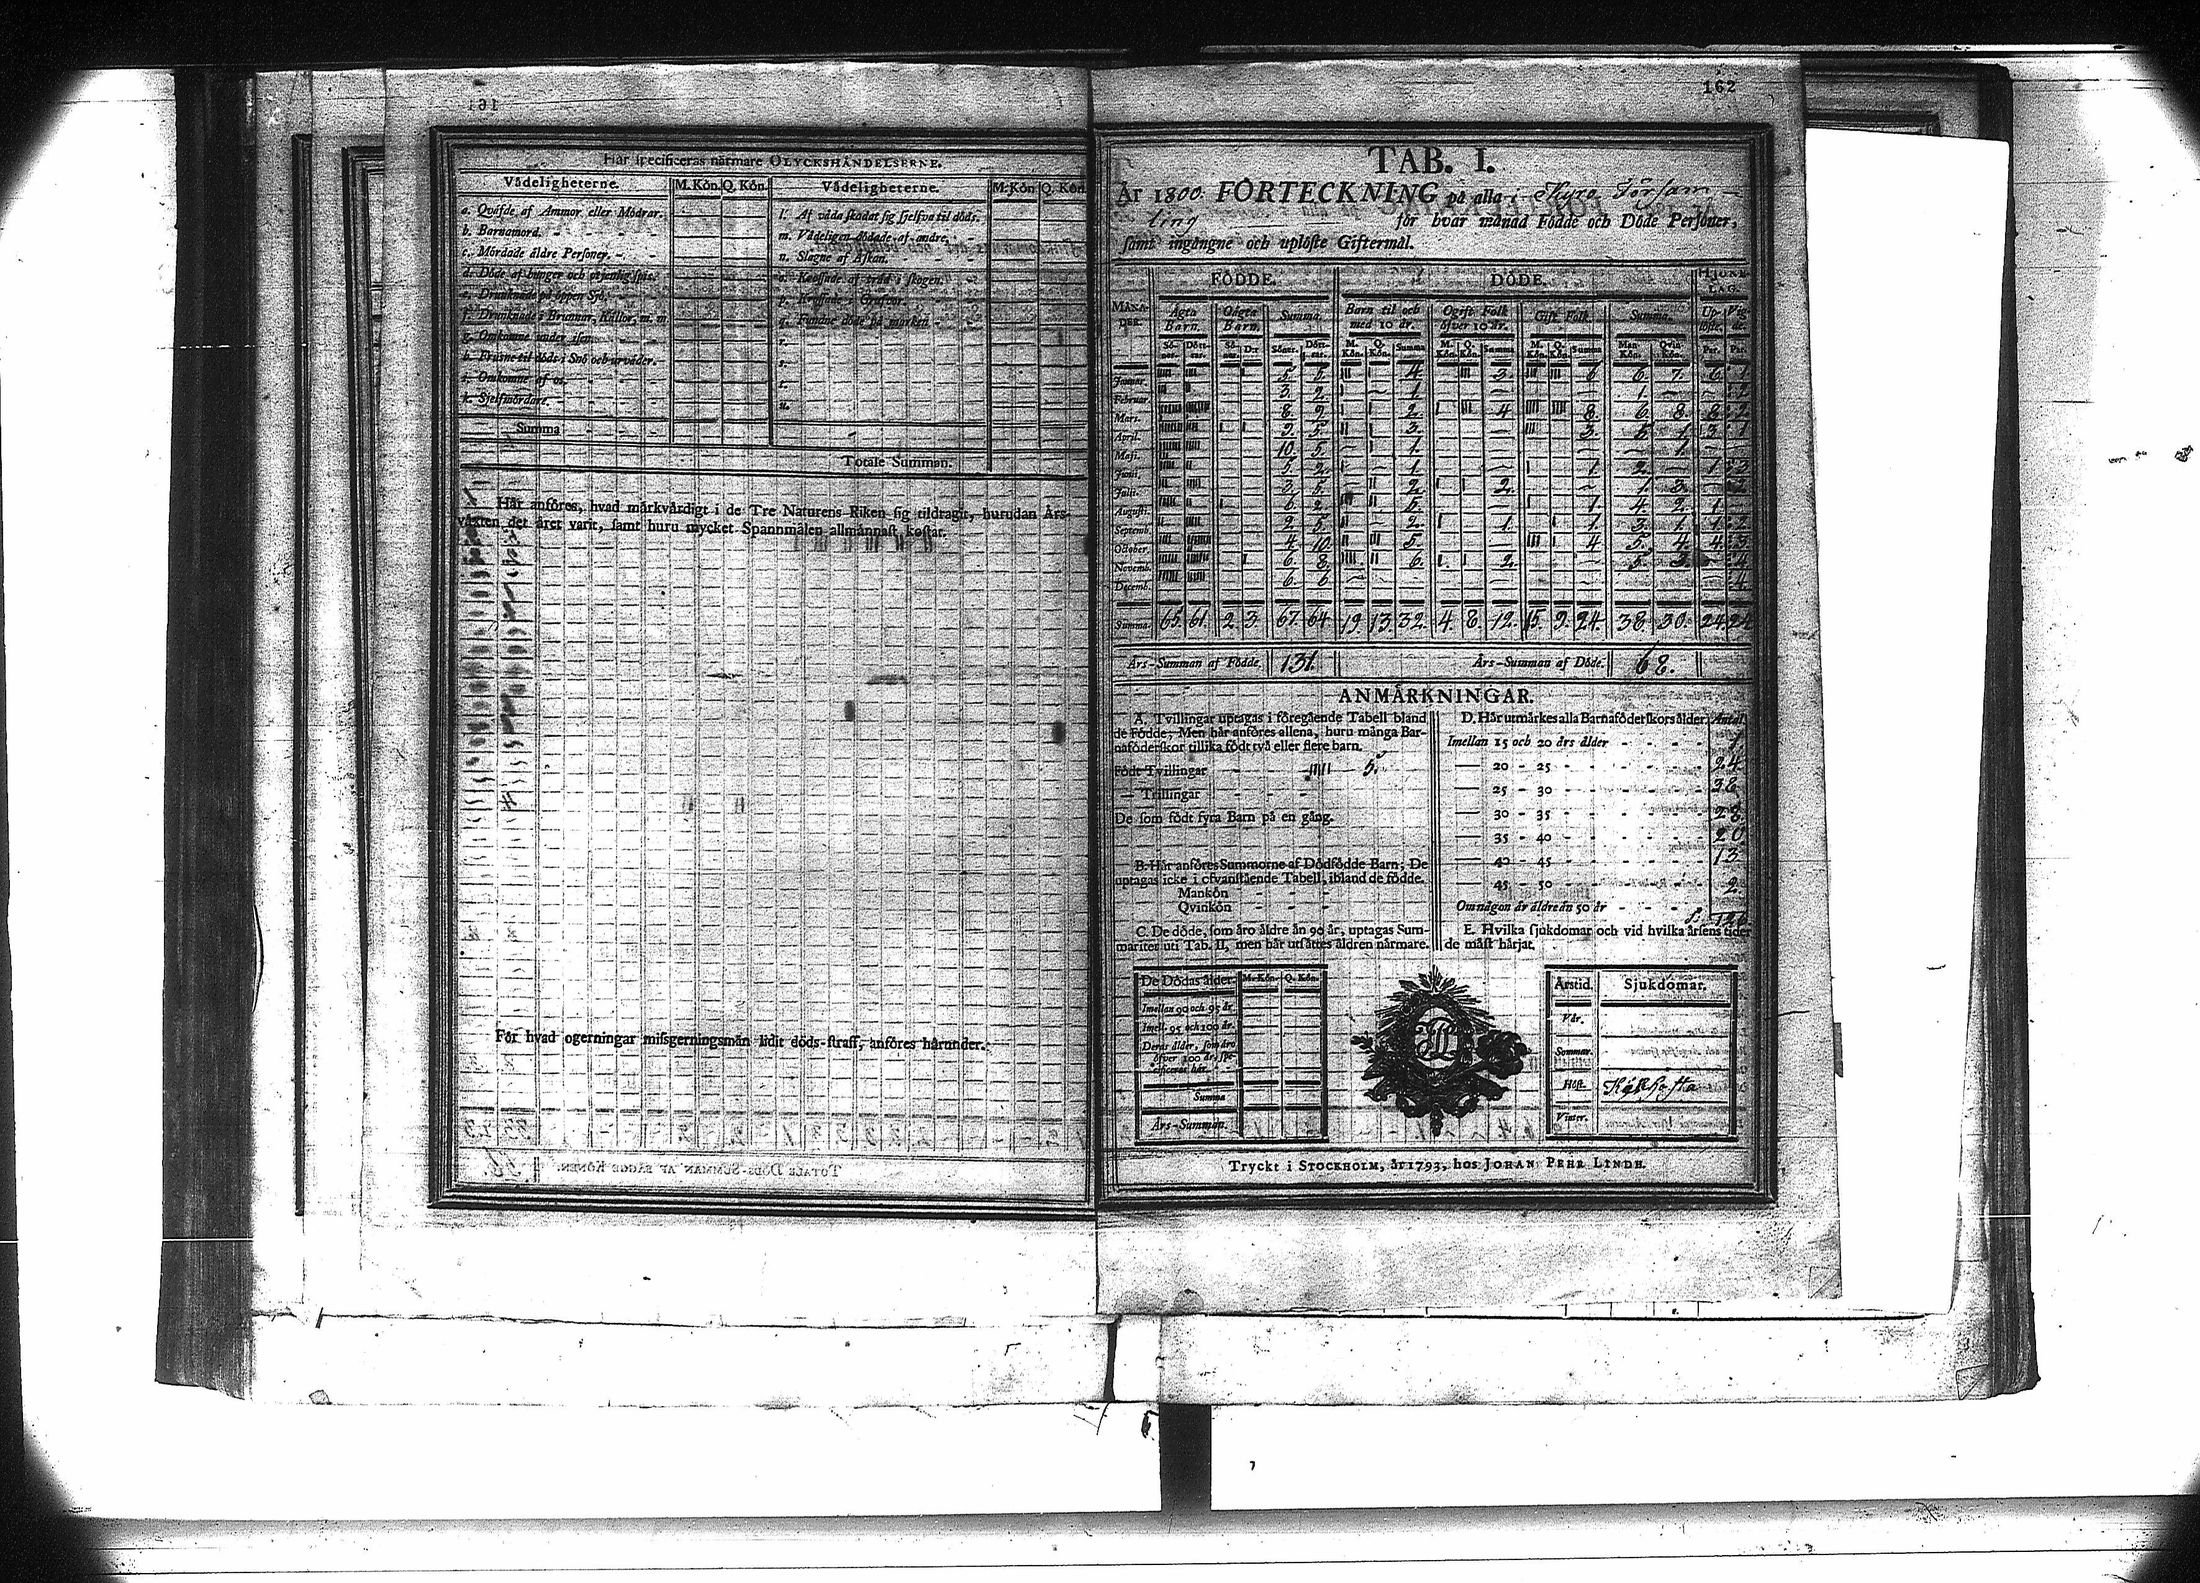 162
Här specificeras närmare OLYCKSHÄNDELSERNE.
Vådeligheterne. M. Kön. Q. Kön. Vådeligheterne. M. Kön Q. Kön
a. Qväfde af Ammor eller Mödrar.
b. Barnamord.
c. Mördade äldre Personer.
d. Döde af hunger och otjenlig spis.
e. Drunknade på öppen Sjö.
f. Drunknade i Brunnar, Källor, m. m.
g. Omkomne under isen
h. Frusne til döds i Snö och urväder.
i. Omkomne af os.
k. Sjelfmördare.
l. Af våda skadat sig sjelfva til döds.
m. Vådeligen dödade af andre.
n. Slagne af Åskan.
o. Krossade af träd i skogen.
p. Krossade i Grufvor.
q. Fundne döde på marken
r.
s.
t.
u.
Summa
Totale Summan.
Här anföres, hvad märkvärdigt i de Tre Naturens Riken sig tildragit, hurudan Års-
växten det året varit, samt huru mycket Spannmålen allmännast kostat.
För hvad ogerningar missgerningsmän lidit döds-straff, anföres härunder.
TAB. I.
År 1800. FÖRTECKNING på alla i Kyro Försam-
ling för hvar månad Födde och Döde Personer,
samt ingångne och uplöste Giftermål.
FÖDDE. DÖDE. HJONE-
LAG.
MÅNA-
DER. Ägta
Barn. Oägta
Barn. Summa. Barn til och
med 10 år. Ogift Folk
öfver 10 år. Gift Folk. Summa. Up-
löste. Vig-
de.
Januar. 5. 5. 4. 3. 6 6. 7. 6. 1
Februar. 3. 2. 1 1. 2
Mart. 8. 2. 2. 4 8. 6. 8. 8. 2
April. 9. 5. 3. 3. 5. 1. 3. 1
Maji. 10. 5. 1. 1.
Junii. 5. 2. 1 1 2. 1. 3
Julii. 3. 5. 2. 2. 1. 3. 2
Augusti. 6. 2. 6. 1 4. 2. 1
Septemb. 2. 5. 2. 1. 1 3. 1. 1. 2
October. 4. 10. 5 4 5. 4. 4. 3
Novemb. 6. 8. 6. 2. 5. 3. 4
Decemb. 6. 6. 4
Summa. 65. 61. 2. 3. 67. 64 19. 13. 32. 4. 8. 12. 15. 9. 24. 38. 30. 24. 24
Års-Summan af Födde. 131. Års-Summan af Döde. 68.
ANMÄRKNINGAR.
A. Tvillingar uptagas i föregående Tabell bland
de Födde; Men här anföres allena, huru många Bar-
naföderskor tillika födt två eller flere barn.
Födt Tvillingar 5.
— Trillingar
De som födt fyra Barn på en gång.
B. Här anföres Summorne af Dödfödde Barn; De
uptagas icke i ofvanstående Tabell, ibland de födde.
Mankön
Qvinkön
C. De döde, som äro äldre än 90 år, uptagas Sum-
mariter uti Tab. II, men här utsättes åldren närmare.
D. Här utmärkes alla Barnaföderskors ålder. Antal.
Imellan 15 och 20 års ålder 1
20 - 25 24
25 - 30 38
30 - 35 28
35 - 40 20
40 - 45 13
45 - 50 2.
Om någon är äldre än 50 år
S: 126
E. Hvilka sjukdomar och vid hvilka årsens tider
de mäst härjat.
De Dödas ålder. M. Kön. Q. Kön.
Imellan 90 och 95 år.
Imell. 95 och 100 år.
Deras ålder, som äro
öfver 100 år, spe-
cificeras här.
Summa
Års-Summan.
Årstid. Sjukdomar.
Vår.
Sommar.
Höst. Kikhosta
Vinter.
Tryckt i STOCKHOLM, år 1793, hos JOHAN PEHR LINDH.